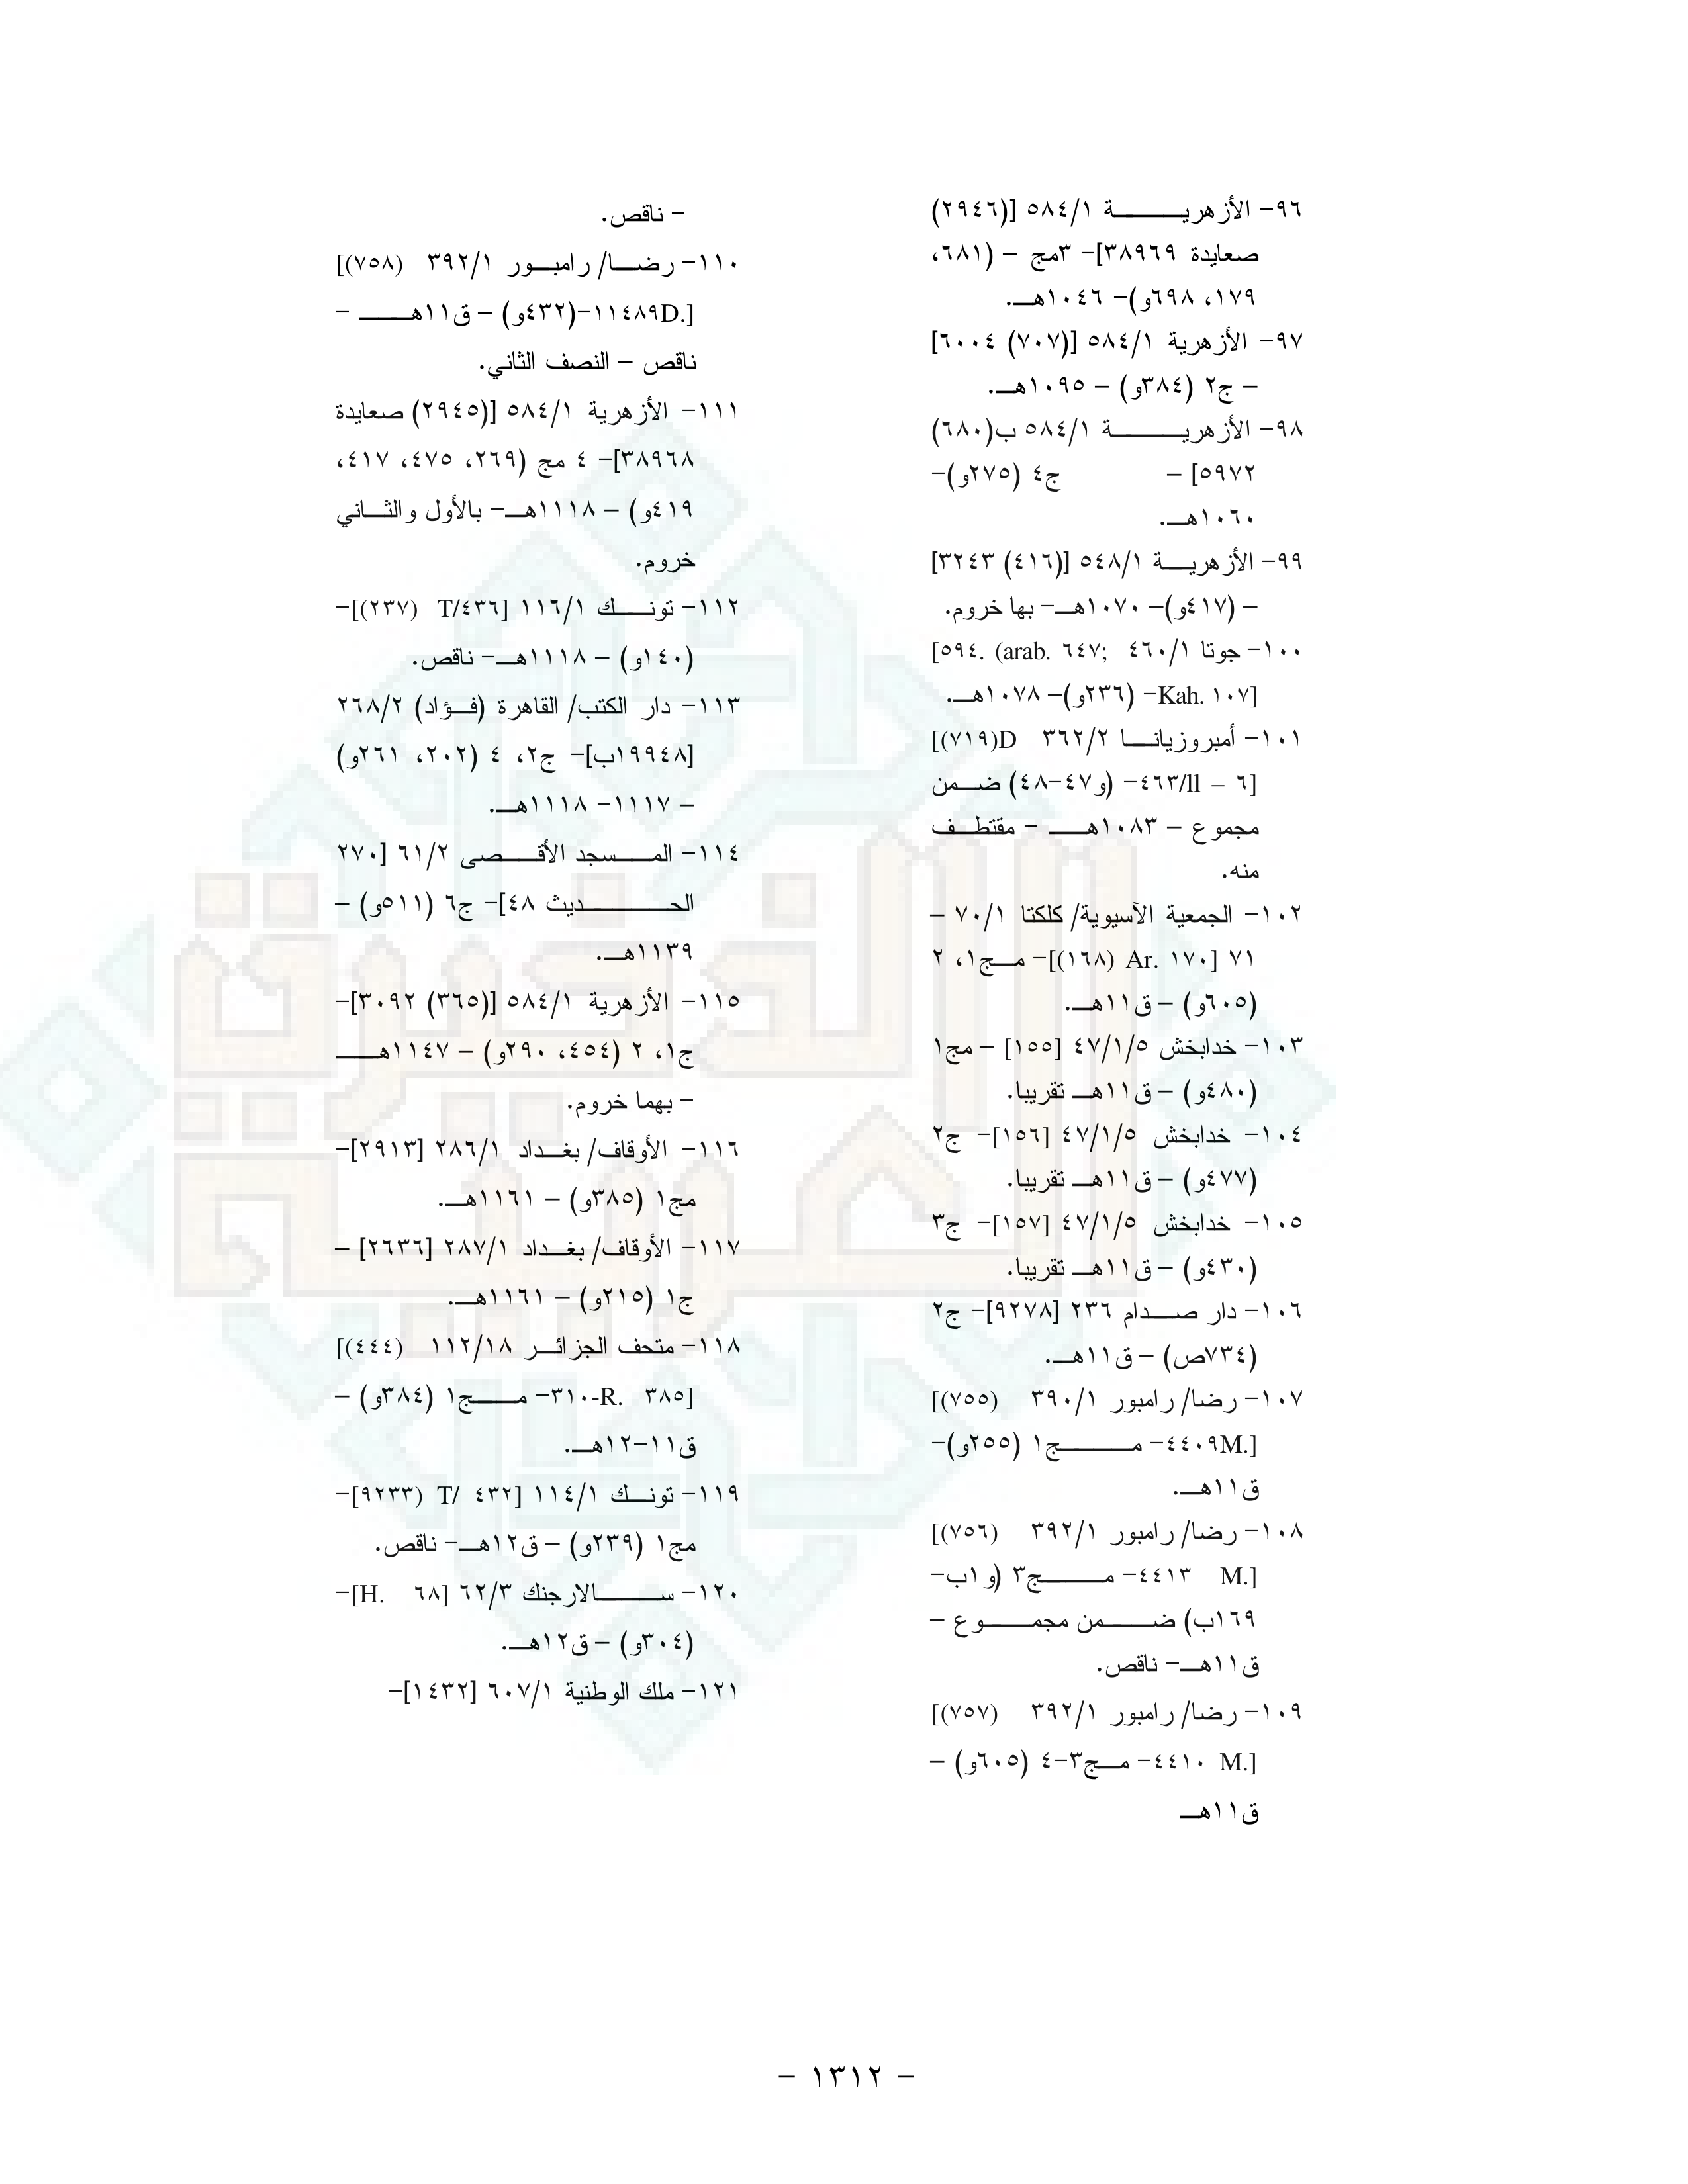 ٩٦- الأزهرية ٥٨٤/١ [(٢٩٤٦)
صعايدة ٣٨٩٦٩]- ٣مج – (٦٨١،
١٧٩، ٦٩٨و)- ١٠٤٦هـ.
٩٧- الأزهرية ٥٨٤/١ [(٧٠٧) ٦٠٠٤]
– ج٢ (٣٨٤و) – ١٠٩٥هـ.
٩٨- الأزهرية ٥٨٤/١ ب(٦٨٠)
٥٩٧٢] – ج٤ (٢٧٥و)-
١٠٦٠هـ.
٩٩- الأزهرية ٥٤٨/١ [(٤١٦) ٣٢٤٣]
– (٤١٧و)- ١٠٧٠هـ- بها خروم.
١٠٠- جوتا ٤٦٠/١ [٥٩٤. (arab. ٦٤٧;
Kah. ١٠٧]- (٢٣٦و)- ١٠٧٨هـ.
١٠١- أمبروزيانا ٣٦٢/٢ [(٧١٩)D
٤٦٣/ll – ٦]- (و٤٧-٤٨) ضمن
مجموع – ١٠٨٣هـ – مقتطف
منه.
١٠٢- الجمعية الآسيوية/ كلكتا ٧٠/١ –
٧١ [Ar. ١٧٠ (١٦٨)]- مج١، ٢
(٦٠٥و) – ق١١هـ.
١٠٣- خدابخش ٤٧/١/٥ [١٥٥] – مج١
(٤٨٠و) – ق١١هـ تقريبا.
١٠٤- خدابخش ٤٧/١/٥ [١٥٦]- ج٢
(٤٧٧و) – ق١١هـ تقريبا.
١٠٥- خدابخش ٤٧/١/٥ [١٥٧]- ج٣
(٤٣٠و) – ق١١هـ تقريبا.
١٠٦- دار صدام ٢٣٦ [٩٢٧٨]- ج٢
(٧٣٤ص) – ق١١هـ.
١٠٧- رضا/ رامبور ٣٩٠/١ [(٧٥٥)
٤٤٠٩M.]- مج١ (٢٥٥و)-
ق١١هـ.
١٠٨- رضا/ رامبور ٣٩٢/١ [(٧٥٦)
٤٤١٣ M.]- مج٣ (و١ب-
١٦٩ب) ضمن مجموع –
ق١١هـ- ناقص.
١٠٩- رضا/ رامبور ٣٩٢/١ [(٧٥٧)
٤٤١٠ M.]- مج٣-٤ (٦٠٥و) –
ق١١هـ
– ناقص.
١١٠- رضا/ رامبور ٣٩٢/١ [(٧٥٨)
١١٤٨٩D.]-(٤٣٢و) – ق١١هـ –
ناقص – النصف الثاني.
١١١- الأزهرية ٥٨٤/١ [(٢٩٤٥) صعايدة
٣٨٩٦٨]- ٤ مج (٢٦٩، ٤٧٥، ٤١٧،
٤١٩و) – ١١١٨هـ- بالأول والثاني
خروم.
١١٢- تونك ١١٦/١ [T/٤٣٦ (٢٣٧)]-
(١٤٠و) – ١١١٨هـ- ناقص.
١١٣- دار الكتب/ القاهرة (فؤاد) ٢٦٨/٢
[١٩٩٤٨ب]- ج٢، ٤ (٢٠٢، ٢٦١و)
– ١١١٧- ١١١٨هـ.
١١٤- المسجد الأقصى ٦١/٢ [٢٧٠
الحديث ٤٨]- ج٦ (٥١١و) –
١١٣٩هـ.
١١٥- الأزهرية ٥٨٤/١ [(٣٦٥) ٣٠٩٢]-
ج١، ٢ (٤٥٤، ٢٩٠و) – ١١٤٧هـ
– بهما خروم.
١١٦- الأوقاف/ بغداد ٢٨٦/١ [٢٩١٣]-
مج١ (٣٨٥و) – ١١٦١هـ.
١١٧- الأوقاف/ بغداد ٢٨٧/١ [٢٦٣٦] –
ج١ (٢١٥و) – ١١٦١هـ.
١١٨- متحف الجزائر ١١٢/١٨ [(٤٤٤)
٣١٠-R. ٣٨٥]- مج١ (٣٨٤و) –
ق١١-١٢هـ.
١١٩- تونك ١١٤/١ [T/ ٤٣٢ (٩٢٣٣]-
مج١ (٢٣٩و) – ق١٢هـ- ناقص.
١٢٠- سالارجنك ٦٢/٣ [H. ٦٨]-
(٣٠٤و) – ق١٢هـ.
١٢١- ملك الوطنية ٦٠٧/١ [١٤٣٢]-
– ١٣١٢ –
الذخيرة
العربية